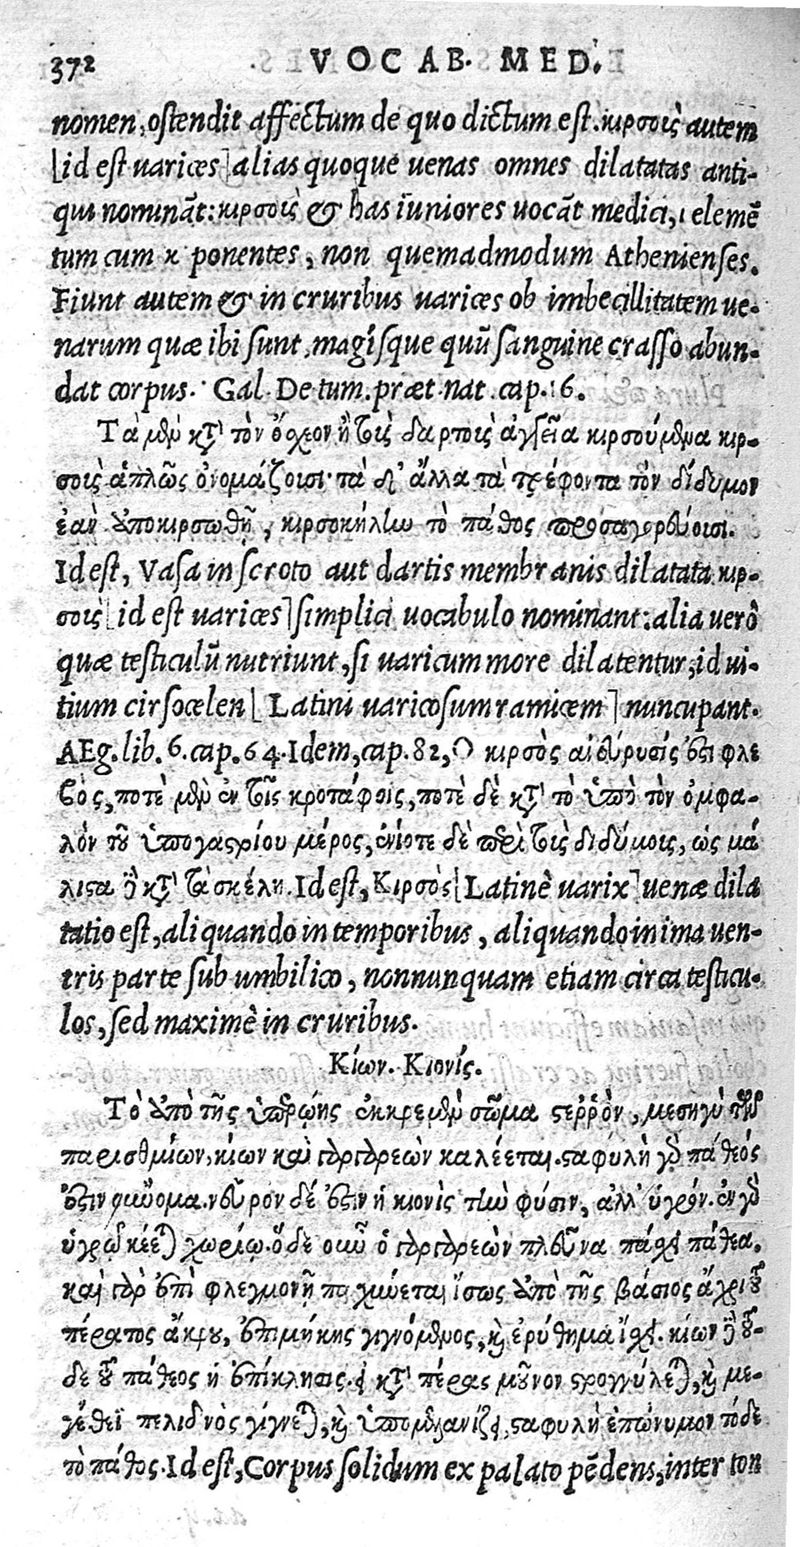 372 VOCAB. MED.
nomen, ostendit affectum de quo dictum est. κιρσοὶς autem
[id est uarices] alias quoque uenas omnes dilatatas anti-
qui nominãt: κιρσοὶς & has iuniores uocãt medici, ι elemẽ
tum cum κ ponentes, non quemadmodum Athenienses.
Fiunt autem & in cruribus uarices ob imbecillitatem ue-
narum quæ ibi sunt, magísque quũ sanguine crasso abun-
dat corpus. Gal. De tum. præt. nat. cap. 16.
Τὰ μὲν κτ̀ τὸν ὄσχεον ἢ τοῖς δαρτοῖς ἀγγεῖα κιρσούμενα κιρ-
σοὶς ἁπλῶς ὀνομάζοισι· τὰ δ' ἄλλα τὰ τρέφοντα τὸν δίδυμον
ἐὰν ὑποκιρσωθῇ, κιρσοκήλην τὸ πάθος προσαγορεύοισι.
Id est, Vasa in scroto aut dartis membranis dilatata κιρ-
σοὶς [id est uarices] simplici uocabulo nominant: alia uerò
quæ testiculũ nutriunt, si uaricum more dilatentur, id ui-
tium cirsocelen [Latini uaricosum ramicem] nuncupant.
AEg. lib. 6. cap. 64. Idem, cap. 82, Ὁ κιρσὸς ἀνεύρυσίς ἐστι φλε
βὸς, ποτὲ μὲν ἐν τοῖς κροτάφοις, ποτὲ δὲ κτ̀ τὸ ὑπὸ τὸν ὀμφα-
λὸν τοῦ ὑπογαστρίου μέρος, ἐνίοτε δὲ περὶ τοῖς διδύμοις, ὡς μά
λιστα ἢ κτ̀ τὰ σκέλη. Id est, Κιρσὸς [Latinè uarix] uenæ dila
tatio est, aliquando in temporibus, aliquando in ima uen-
tris parte sub umbilico, nonnunquam etiam circa testicu-
los, sed maximè in cruribus.
Κίων. Κιονίς.
Τὸ ἀπὸ τῆς ὑπερῴης ἐκκρεμὲς σῶμα στερρὸν, μεσηγὺ τῶν
παρισθμίων, κίων καὶ γαργαρεὼν καλέεται. σταφυλὴ γὰρ πάθεός
ἐστιν οὔνομα. νεῦρον δέ ἐστιν ἡ κιονὶς τὴν φύσιν, ἀλλ' ὑγρόν. ἐν γὰρ
ὑγρῷ κέεται χωρίῳ. ὅδε οὖν ὁ γαργαρεὼν πλεῦνα πάσχει πάθεα.
καὶ γὰρ ἐπὶ φλεγμονῇ παχύνεται ἴσως ἀπὸ τῆς βάσιος ἄχρι τοῦ
πέρατος ἄκρου, ἐπιμήκης γιγνόμενος, καὶ ἐρύθημα ἴσχει. κίων ἢ τοῦ-
δε τοῦ πάθεος ἡ ἐπίκλησις. εἰ κτ̀ πέρας μοῦνον στρογγύλεται, καὶ με-
γέθεϊ πελιδνὸς γίγνεται, καὶ ὑπομελανίζει, σταφυλὴ ἐπώνυμον τόδε
τὸ πάθος. Id est, Corpus solidum ex palato pẽdens, inter ton